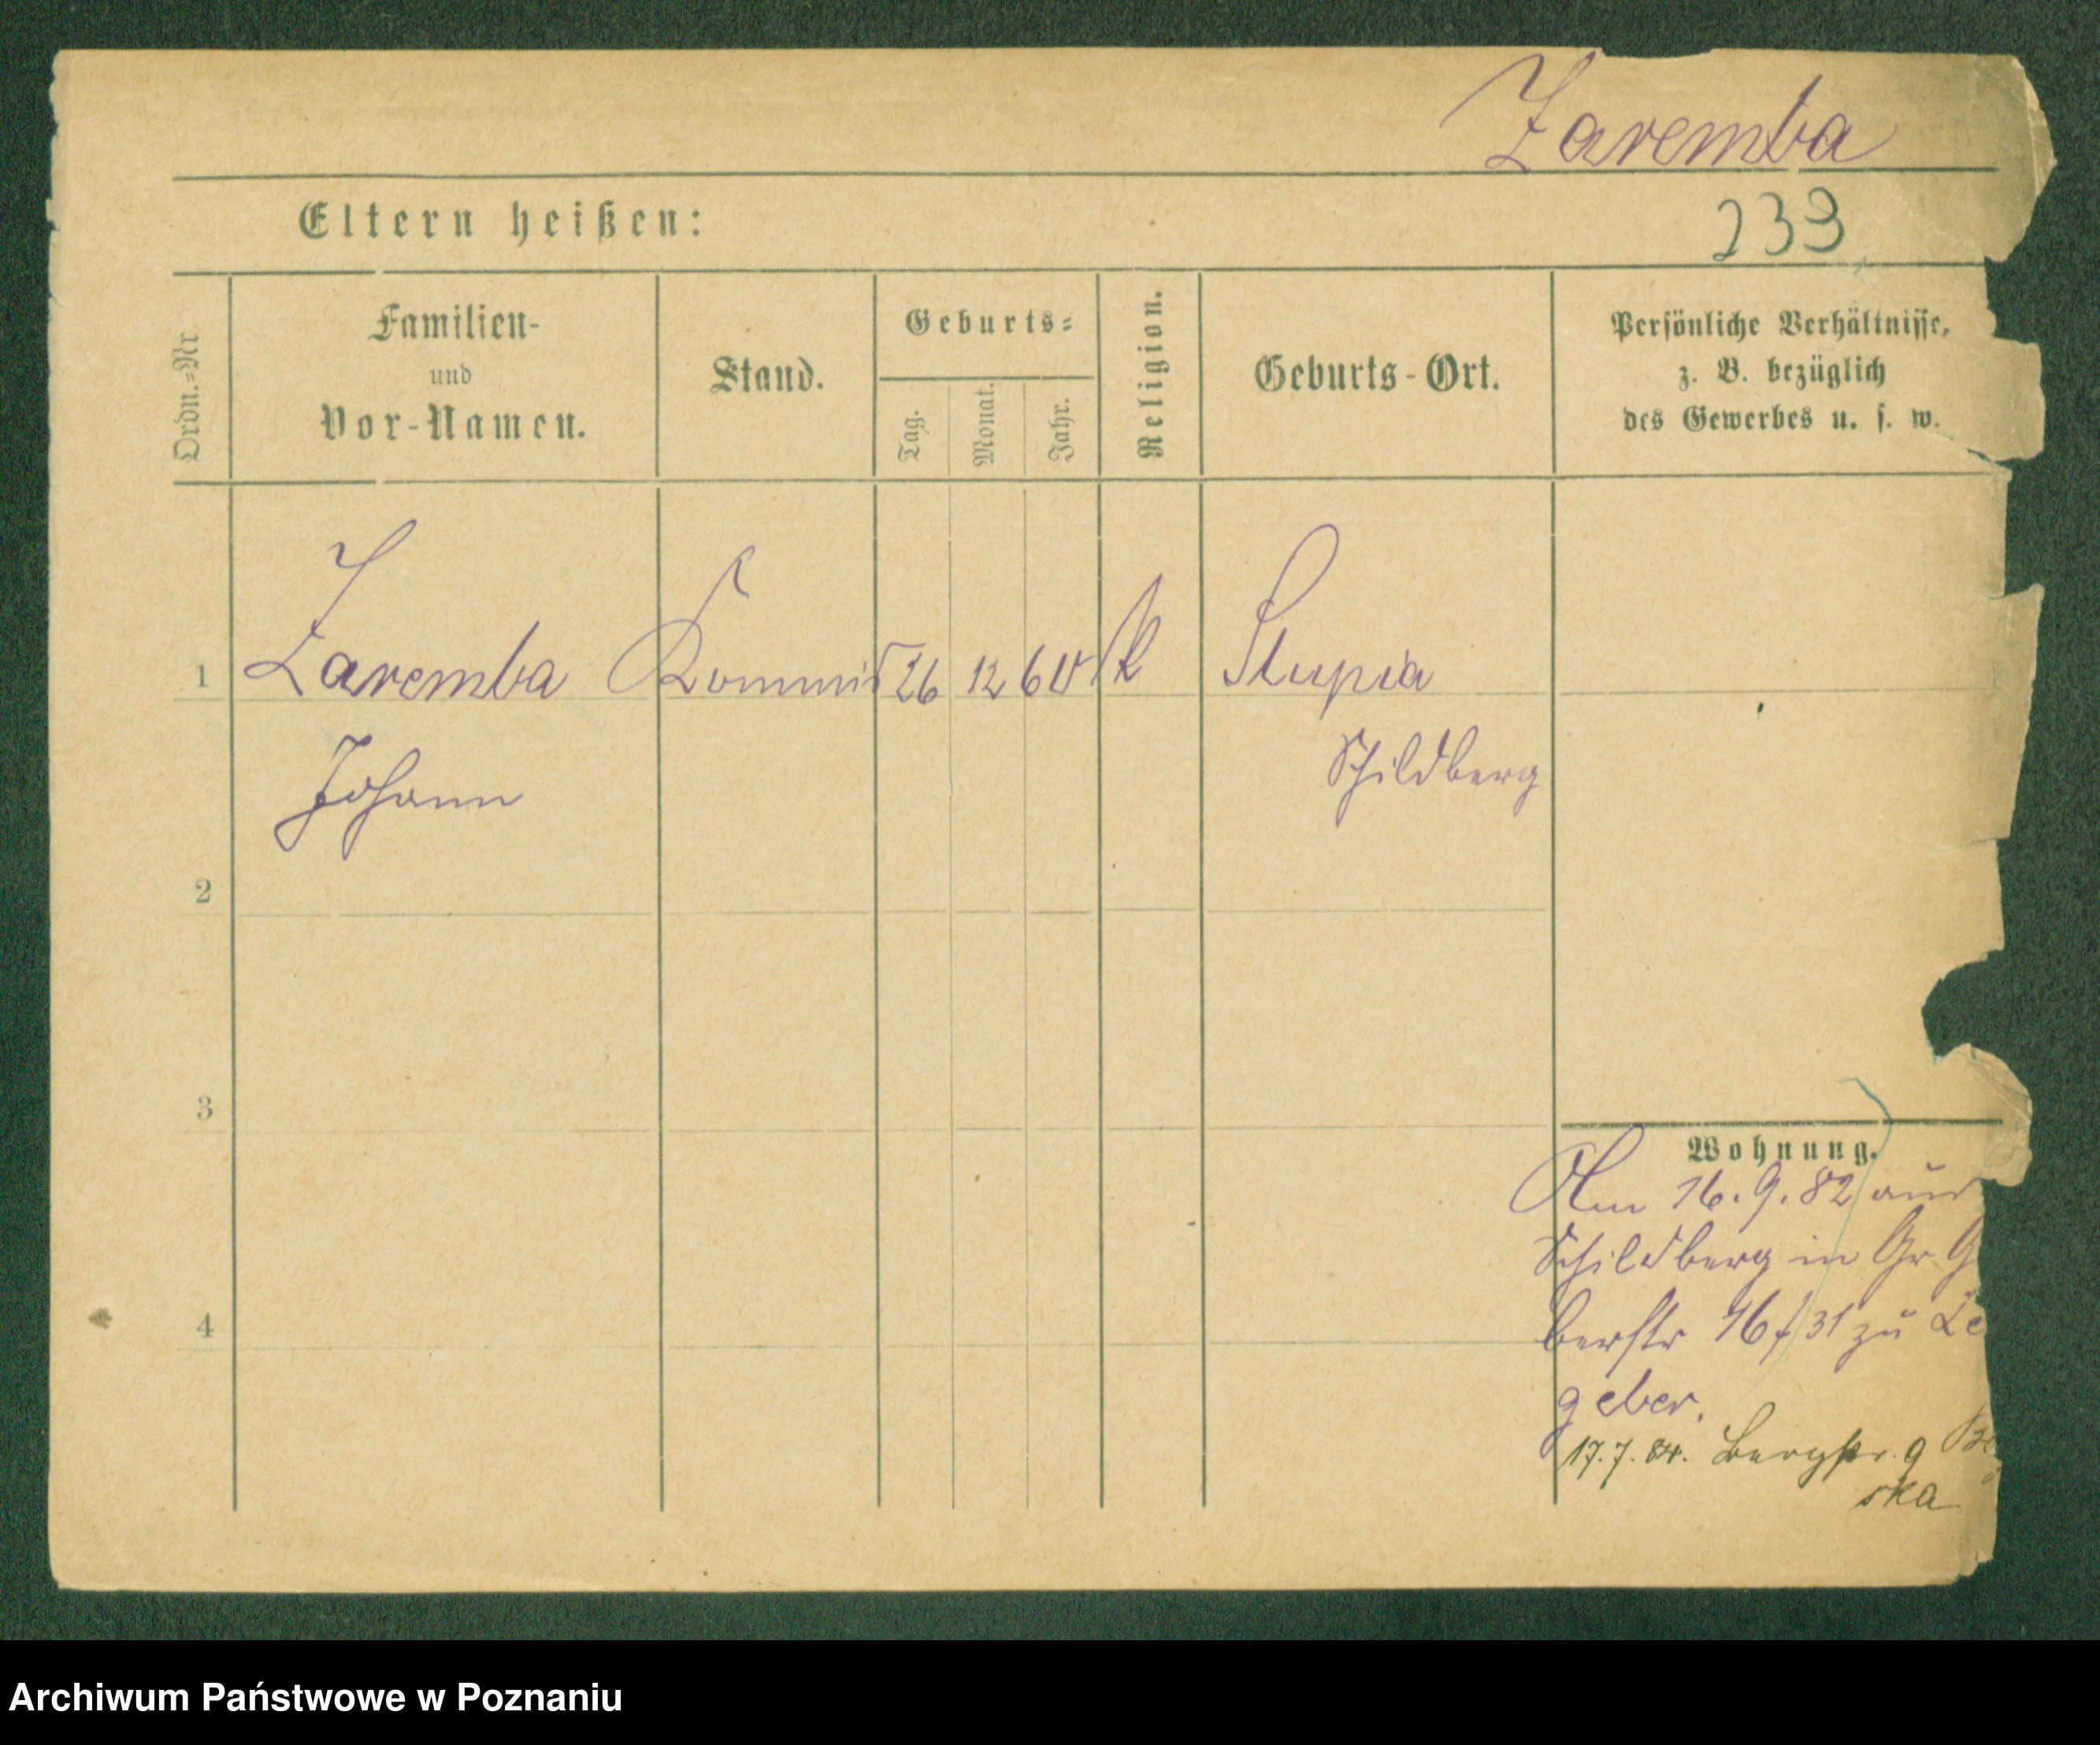 Zaremba
239
Eltern heißen:
Ordn.-Nr
Familien-
und
Vor-Namen.
Stand.
Geburts-
Tag.
Monat.
Jahr.
Religion.
Geburts-Ort.
Persönliche Verhältnisse,
z. B. bezüglich
des Gewerbes u. s. w.
1 Zaremba Kommis 26 12 60 k Stupia
Johann Schildberg
2
3
4
Wohnung.
Am 16.9.82 aus
Schildberg in Gr G
berstr 16/31 zu Le
geber.
17.7.84. Bergstr. 9
ska
Archiwum Państwowe w Poznaniu